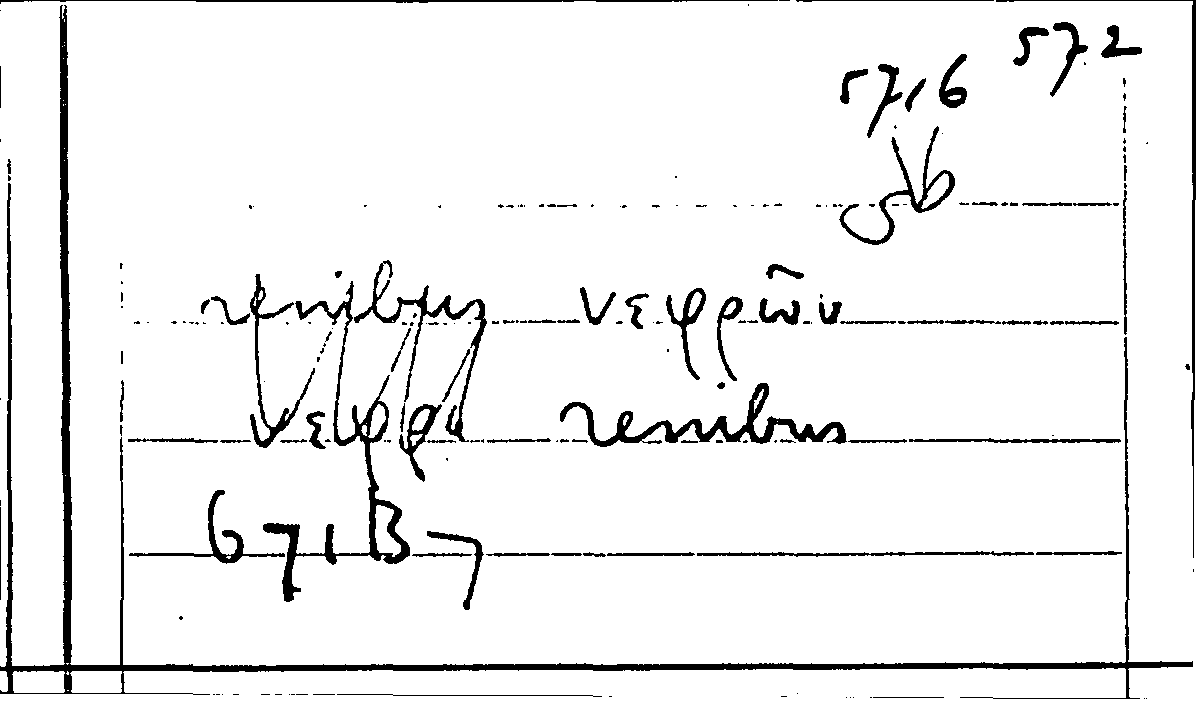 572
57,6
renibus νεφρῶν
νεφρ renibus
671B7